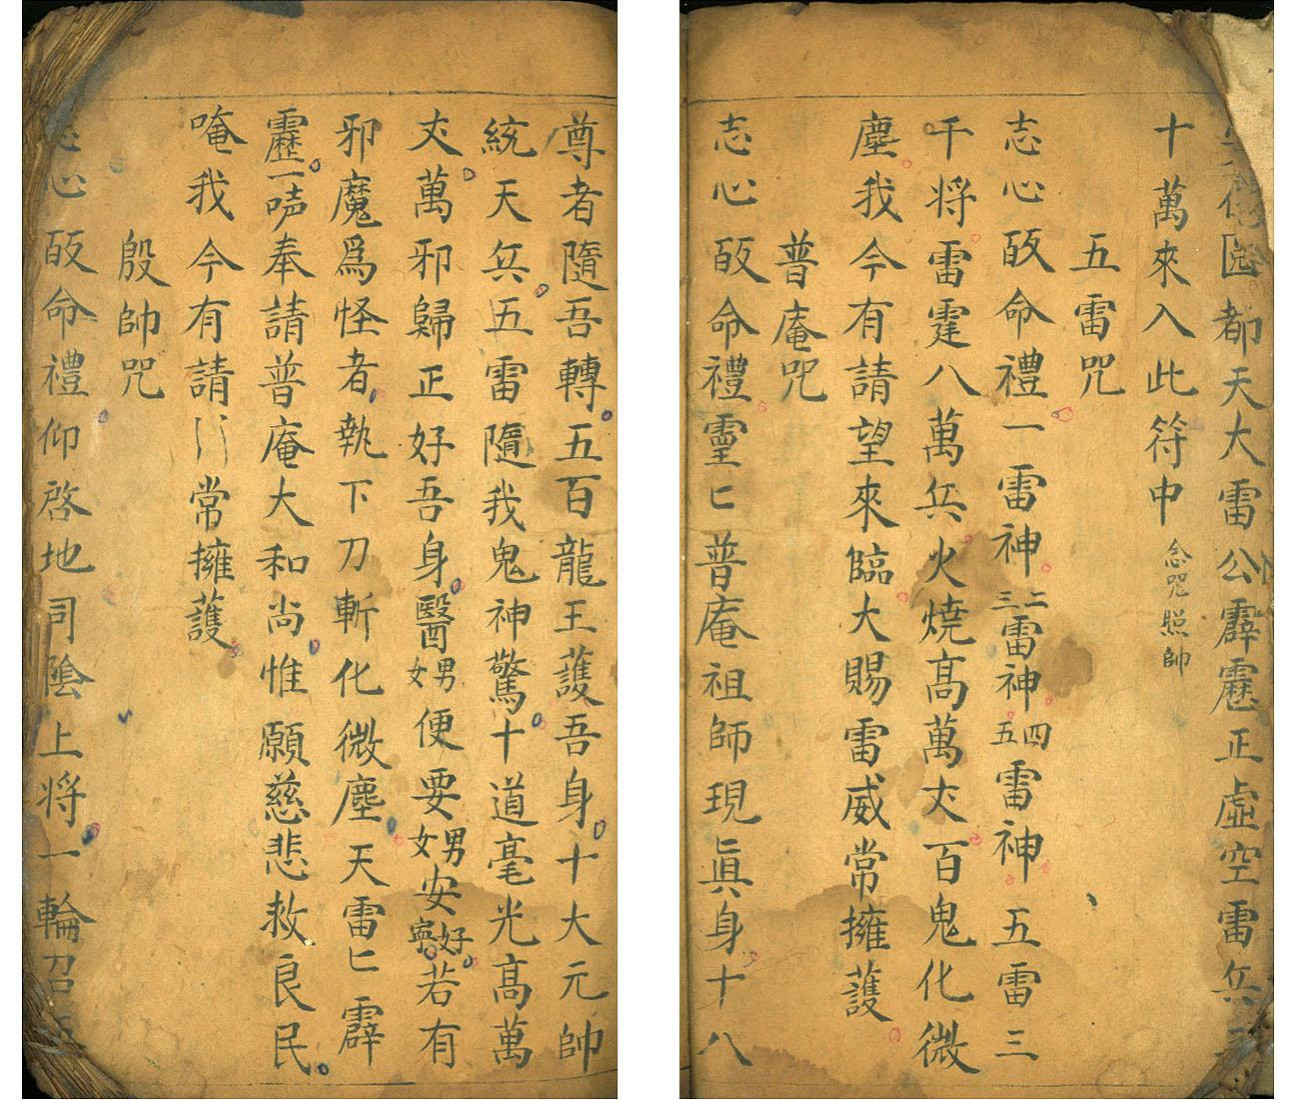 都天大雷公霹靂正虛空雷兵
十萬來入此符中 念咒照帥
五雷咒
志心皈命禮一雷神二三雷神四五雷神五雷三
千将雷霆八萬兵火燒髙萬丈百鬼化微
塵我今有請望來臨大賜雷威常擁護
普庵咒
志心皈命禮靈匕普庵祖師現眞身十八
尊者隨吾轉五百龍王護吾身十大元帥
統天兵五雷隨我鬼神驚十道毫光髙萬
丈萬邪歸正好吾身醫男女便要男女安好寧若有
邪魔爲怪者執下刀斬化微塵天雷匕霹
靂一声奉請普庵大和尚惟願慈悲救良民
唵我今有請〻常擁護
殷帥咒
心皈命禮仰啓地司陰上将一輪召